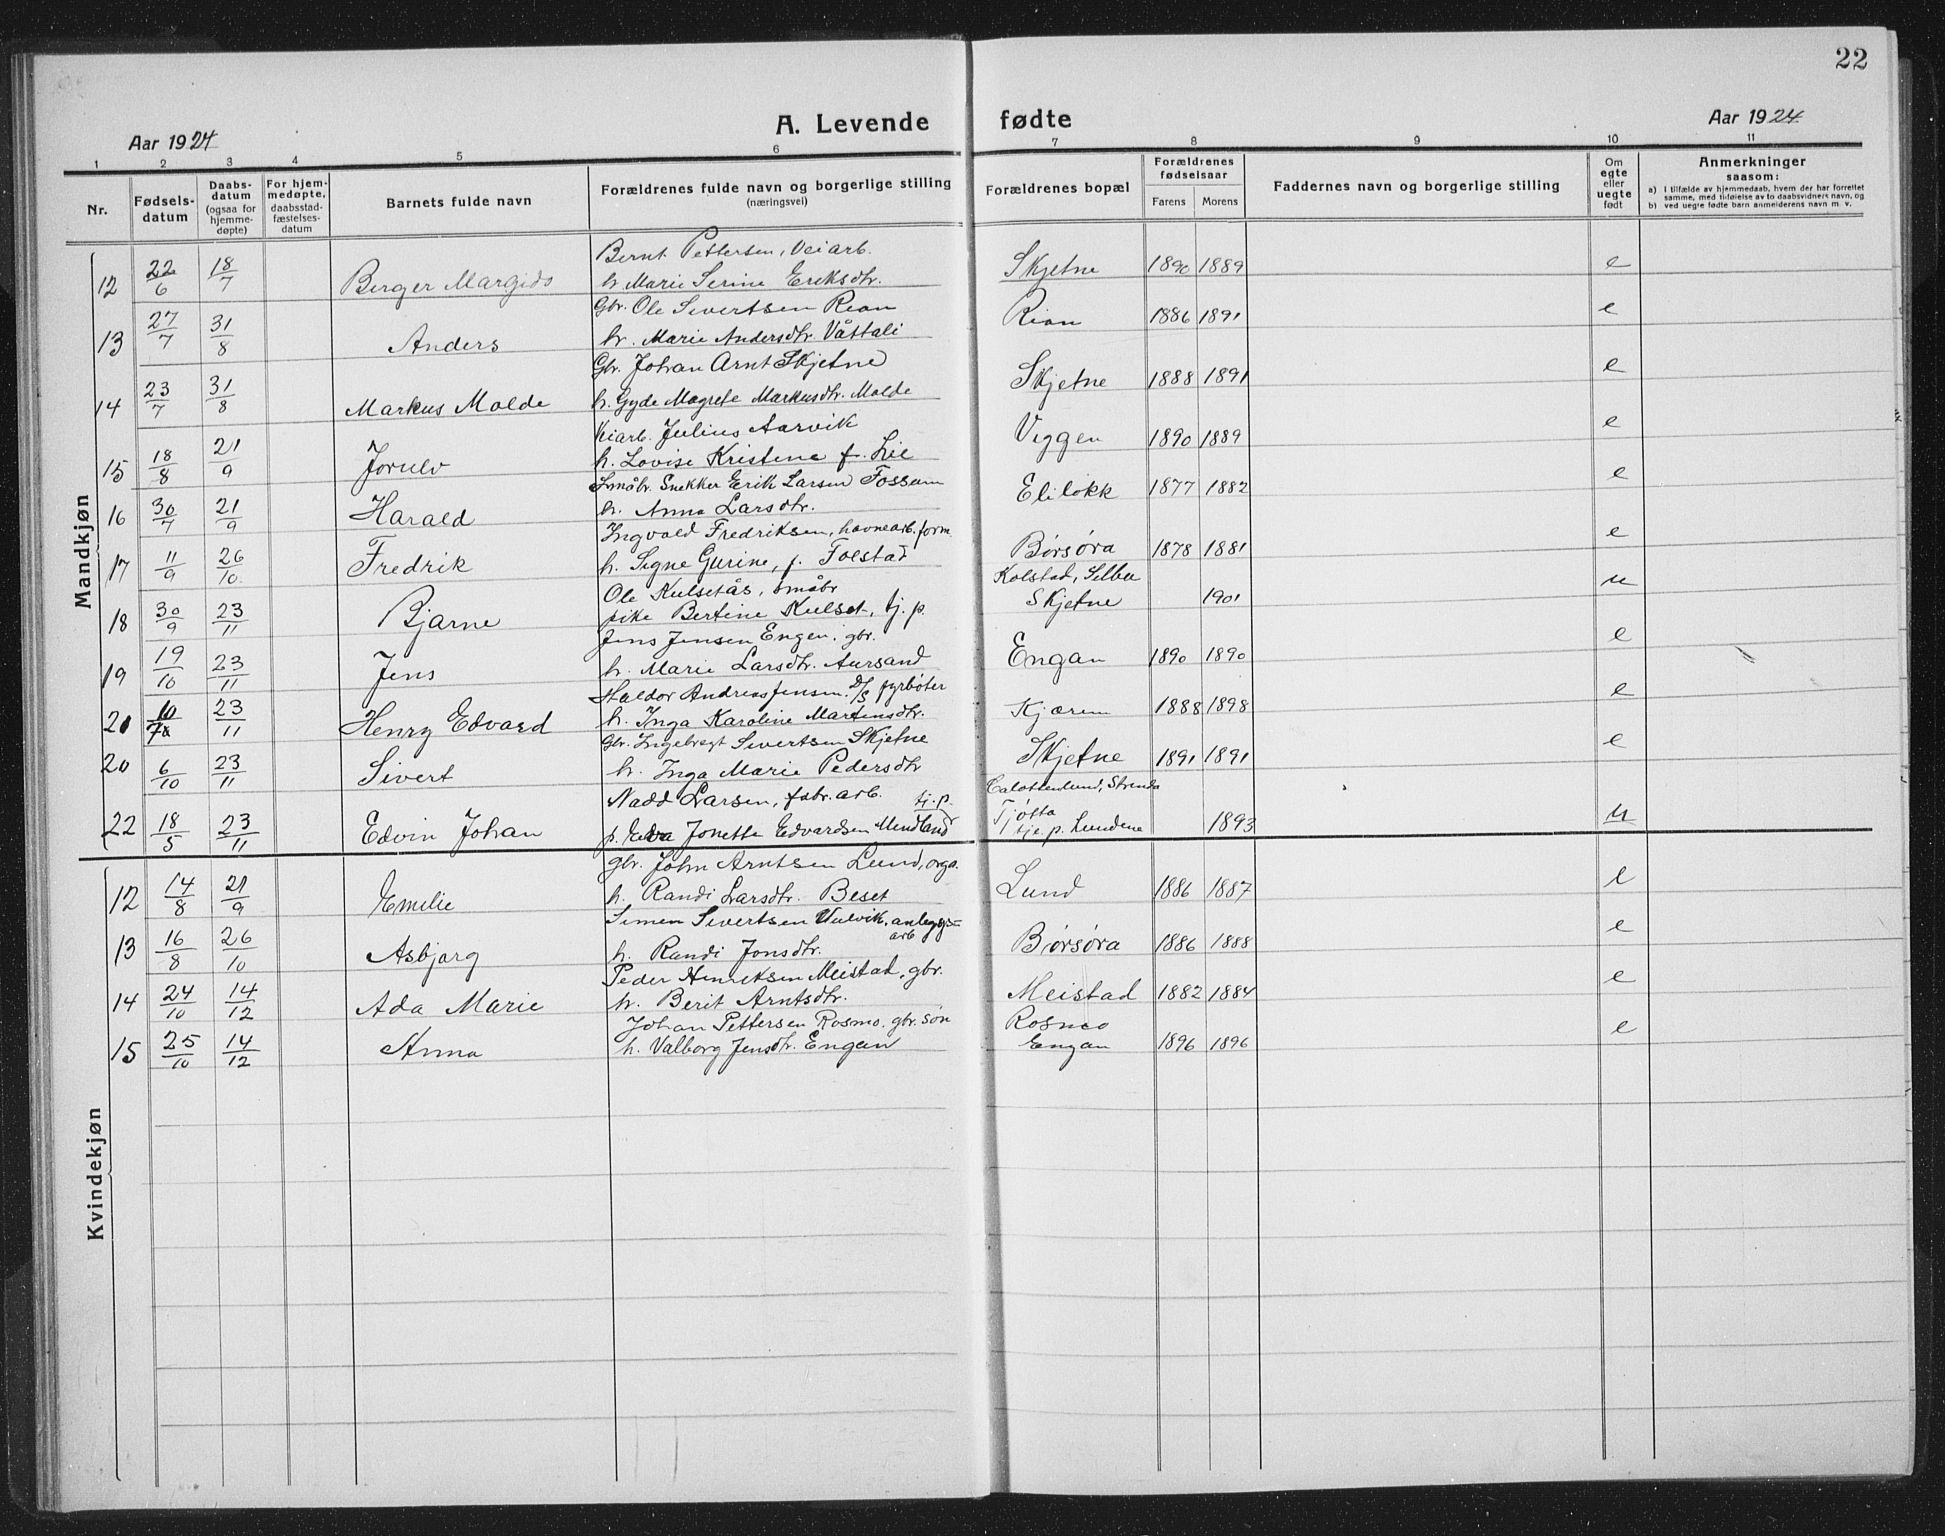 22
Aar 1924 A. Levende fødte Aar 1924
1 2 3 4 5 6 7 8 9 10 11
Nr. Fødsels-datum Daabs-datum (ogsaa for hjemme-døpte) For hjem-medøpte, daabsstad-fæstelses-datum Barnets fulde navn Forældrenes fulde navn og borgerlige stilling (næringsvei) Forældrenes bopæl Forældrenes fødselsaar Farens Morens Faddernes navn og borgerlige stilling Om egte eller uegte født Anmerkninger saasom:
a) I tilfælde av hjemmedaab, hvem der har forrettet samme, med tilføielse av to daabsvidners navn, og
b) ved uegte fødte barn anmelderens navn m. v.
Mandkjøn
Bernt Pettersen, Veiarb.
12 22/6 18/7 Berger Margido h. Marie Serine Eriksdtr. Skjetne 1890 1889 e
Gbr. Ole Sivertsen Rian
13 27/7 31/8 Anders h. Marie Andersdtr. Våttali Rian 1886 1891 e
Gbr. Johan Arnt Skjetne
14 23/7 31/8 Markus Molde h. Gyde Magrete Markusdtr. Molde Skjetne 1888 1891 e
Veiarb. Julius Aarvik
15 18/8 21/9 Jorulv h. Lovise Kristene f. Lie Veggen 1890 1889 e
Småbr. Snekker Erik Larsen Fossum
16 30/7 21/9 Harald h. Anna Larsdtr. Elilokk 1877 1882 e
Ingvald Fredriksen, havnearb. form.
17 11/9 26/10 Fredrik h. Signe Gurine, f. Folstad Børsøra 1878 1881 e
Ole Kulsetås, småbr Kolstad, Selbu
18 30/9 23/11 Bjarne pike Bertine Kulset, tj. p. Skjetne 1901 u
Jens Jensen Engen, gbr.
19 19/10 23/11 Jens h. Marie Larsdtr. Aursand Engan 1890 1890 e
Haldor Andreas Jensen D/S fyrbøter
21 10/7 23/11 Henry Edvard h. Inga Karoline Martinsdtr. Kjærem 1888 1898 e
Gbr. Ingebregt Sivertsen Skjetne
20 6/10 23/11 Sivert h. Inga Marie Pedersdtr Skjetne 1891 1891 e
Nadd Larsen, fabr. arb. tj. p. Calottenlund, Strinda
22 18/5 23/11 Edvin Johan p. Edva Jonette Edvardsen Mundland Tjøtta tje. p. Lundene 1893 u
Kvindekjøn
gbr. John Arntsen Lund, orga.
12 14/8 21/9 Emilie h. Randi Larsdtr. Beset Lund 1886 1887 e
Simen Sivertsen Vulvik, anlegs=arb
13 16/8 26/10 Asbjørg h. Randi Jonsdtr. Børsøra 1886 1888 e
Peder Henriksen Meistad, gbr.
14 24/10 14/12 Ada Marie h. Berit Arntsdtr. Meistad 1882 1884 e
Johan Pettersen Rosmo, gbr. søn Rosmo
15 25/10 14/12 Anna h. Valborg Jensdtr. Engan Engan 1896 1896 e